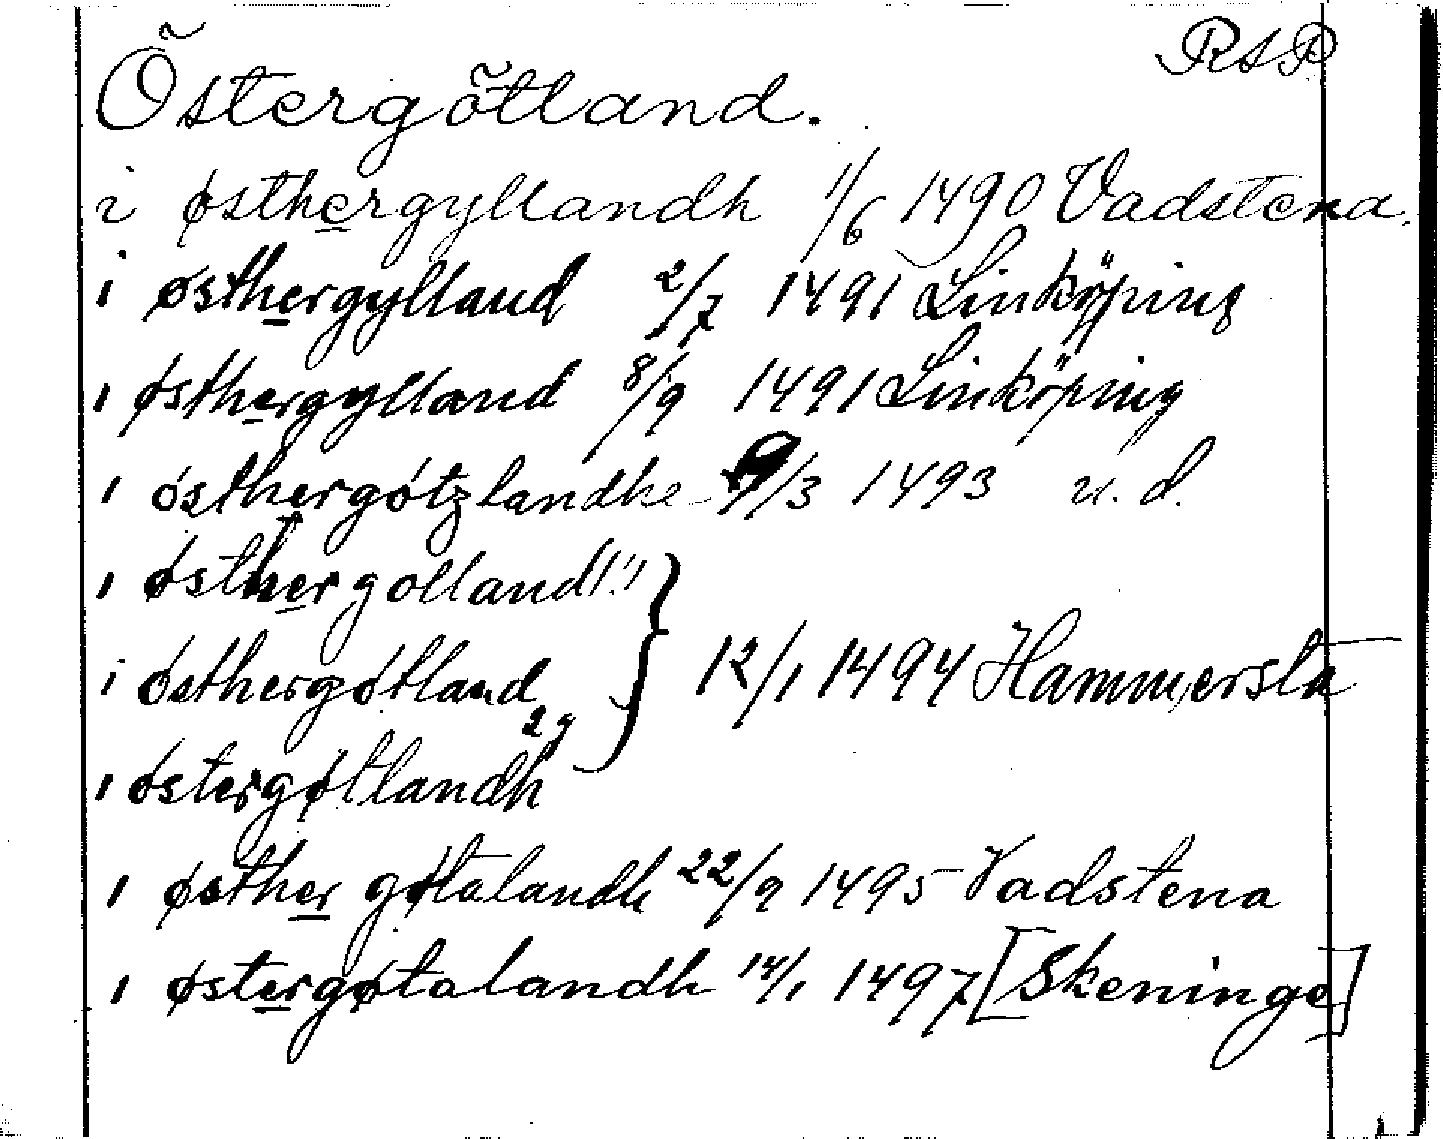 RAP
Östergötland.
i østhergyllandh 1/6 1490 Vadstena.
i østhergylland 2/7 1491 Linköping
i østhergylland 8/9 1491 Linköping
i østhergøtzlandhe 9/3 1493 u.d.
i østhergolland(!)
i østhergøtland 12/1 1494 Hammersta
2g
i østergøtlandh
i østher gøtalandh 22/9 1495 Vadstena
i østergøtalandh 14/1 1497 [Skeninge]